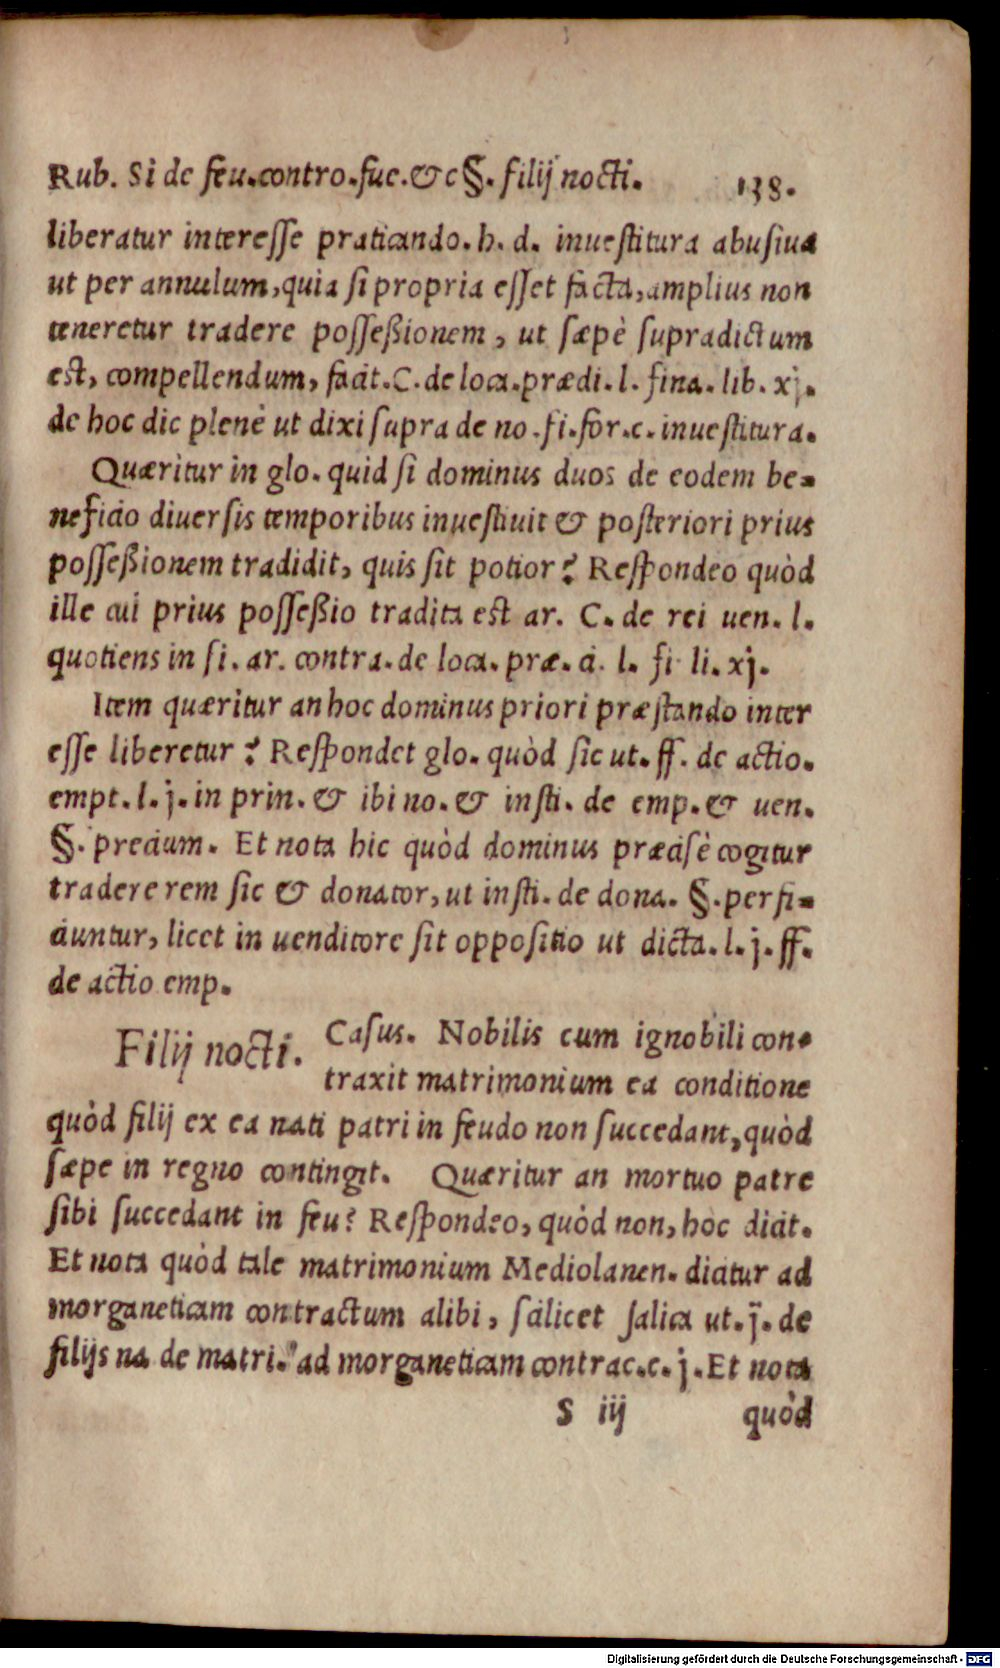 Rub. Si de feu.contro.fue.&c§. filij nocti. 138.
liberatur interesse praticando. h. d. inuestitura abusiua
ut per annulum,quia si propria esset facta,amplius non
teneretur tradere posseßionem, ut sæpè supradictum
est, compellendum, facit. C. de loca.prædi. l. fina. lib. xj.
de hoc dic plenè ut dixi supra de no.fi.for.c. inuestitura.
Quæritur in glo. quid si dominus duos de eodem be-
neficio diuersis temporibus inuestiuit & posteriori prius
posseßionem tradidit, quis sit potior? Respondeo quòd
ille cui prius posseßio tradita est ar. C. de rei uen. l.
quotiens in fi. ar. contra. de loca. præ. ci. l. fi li. xj.
Item quæritur an hoc dominus priori præstando inter
esse liberetur? Respondet glo. quòd sic ut. ff. de actio.
empt. l. j. in prin. & ibi no. & insti. de emp. & uen.
§. precium. Et nota hic quòd dominus præcisè cogitur
tradere rem sic & donator, ut insti. de dona. §. perfi-
ciuntur, licet in uenditore sit oppositio ut dicta. l. j. ff.
de actio emp.
Filij nocti. Casus. Nobilis cum ignobili con-
traxit matrimonium ea conditione
quòd filij ex ea nati patri in feudo non succedant,quòd
sæpe in regno contingit. Quæritur an mortuo patre
sibi succedant in feu? Respondeo, quòd non, hoc dicit.
Et nota quòd tale matrimonium Mediolanen. dicitur ad
morganeticam contractum alibi, scilicet salica ut. j. de
filijs na de matri. ad morganeticam contrac.c. j. Et nota
S iij quòd
Digitalisierung gefördert durch die Deutsche Forschungsgemeinschaft - DFG